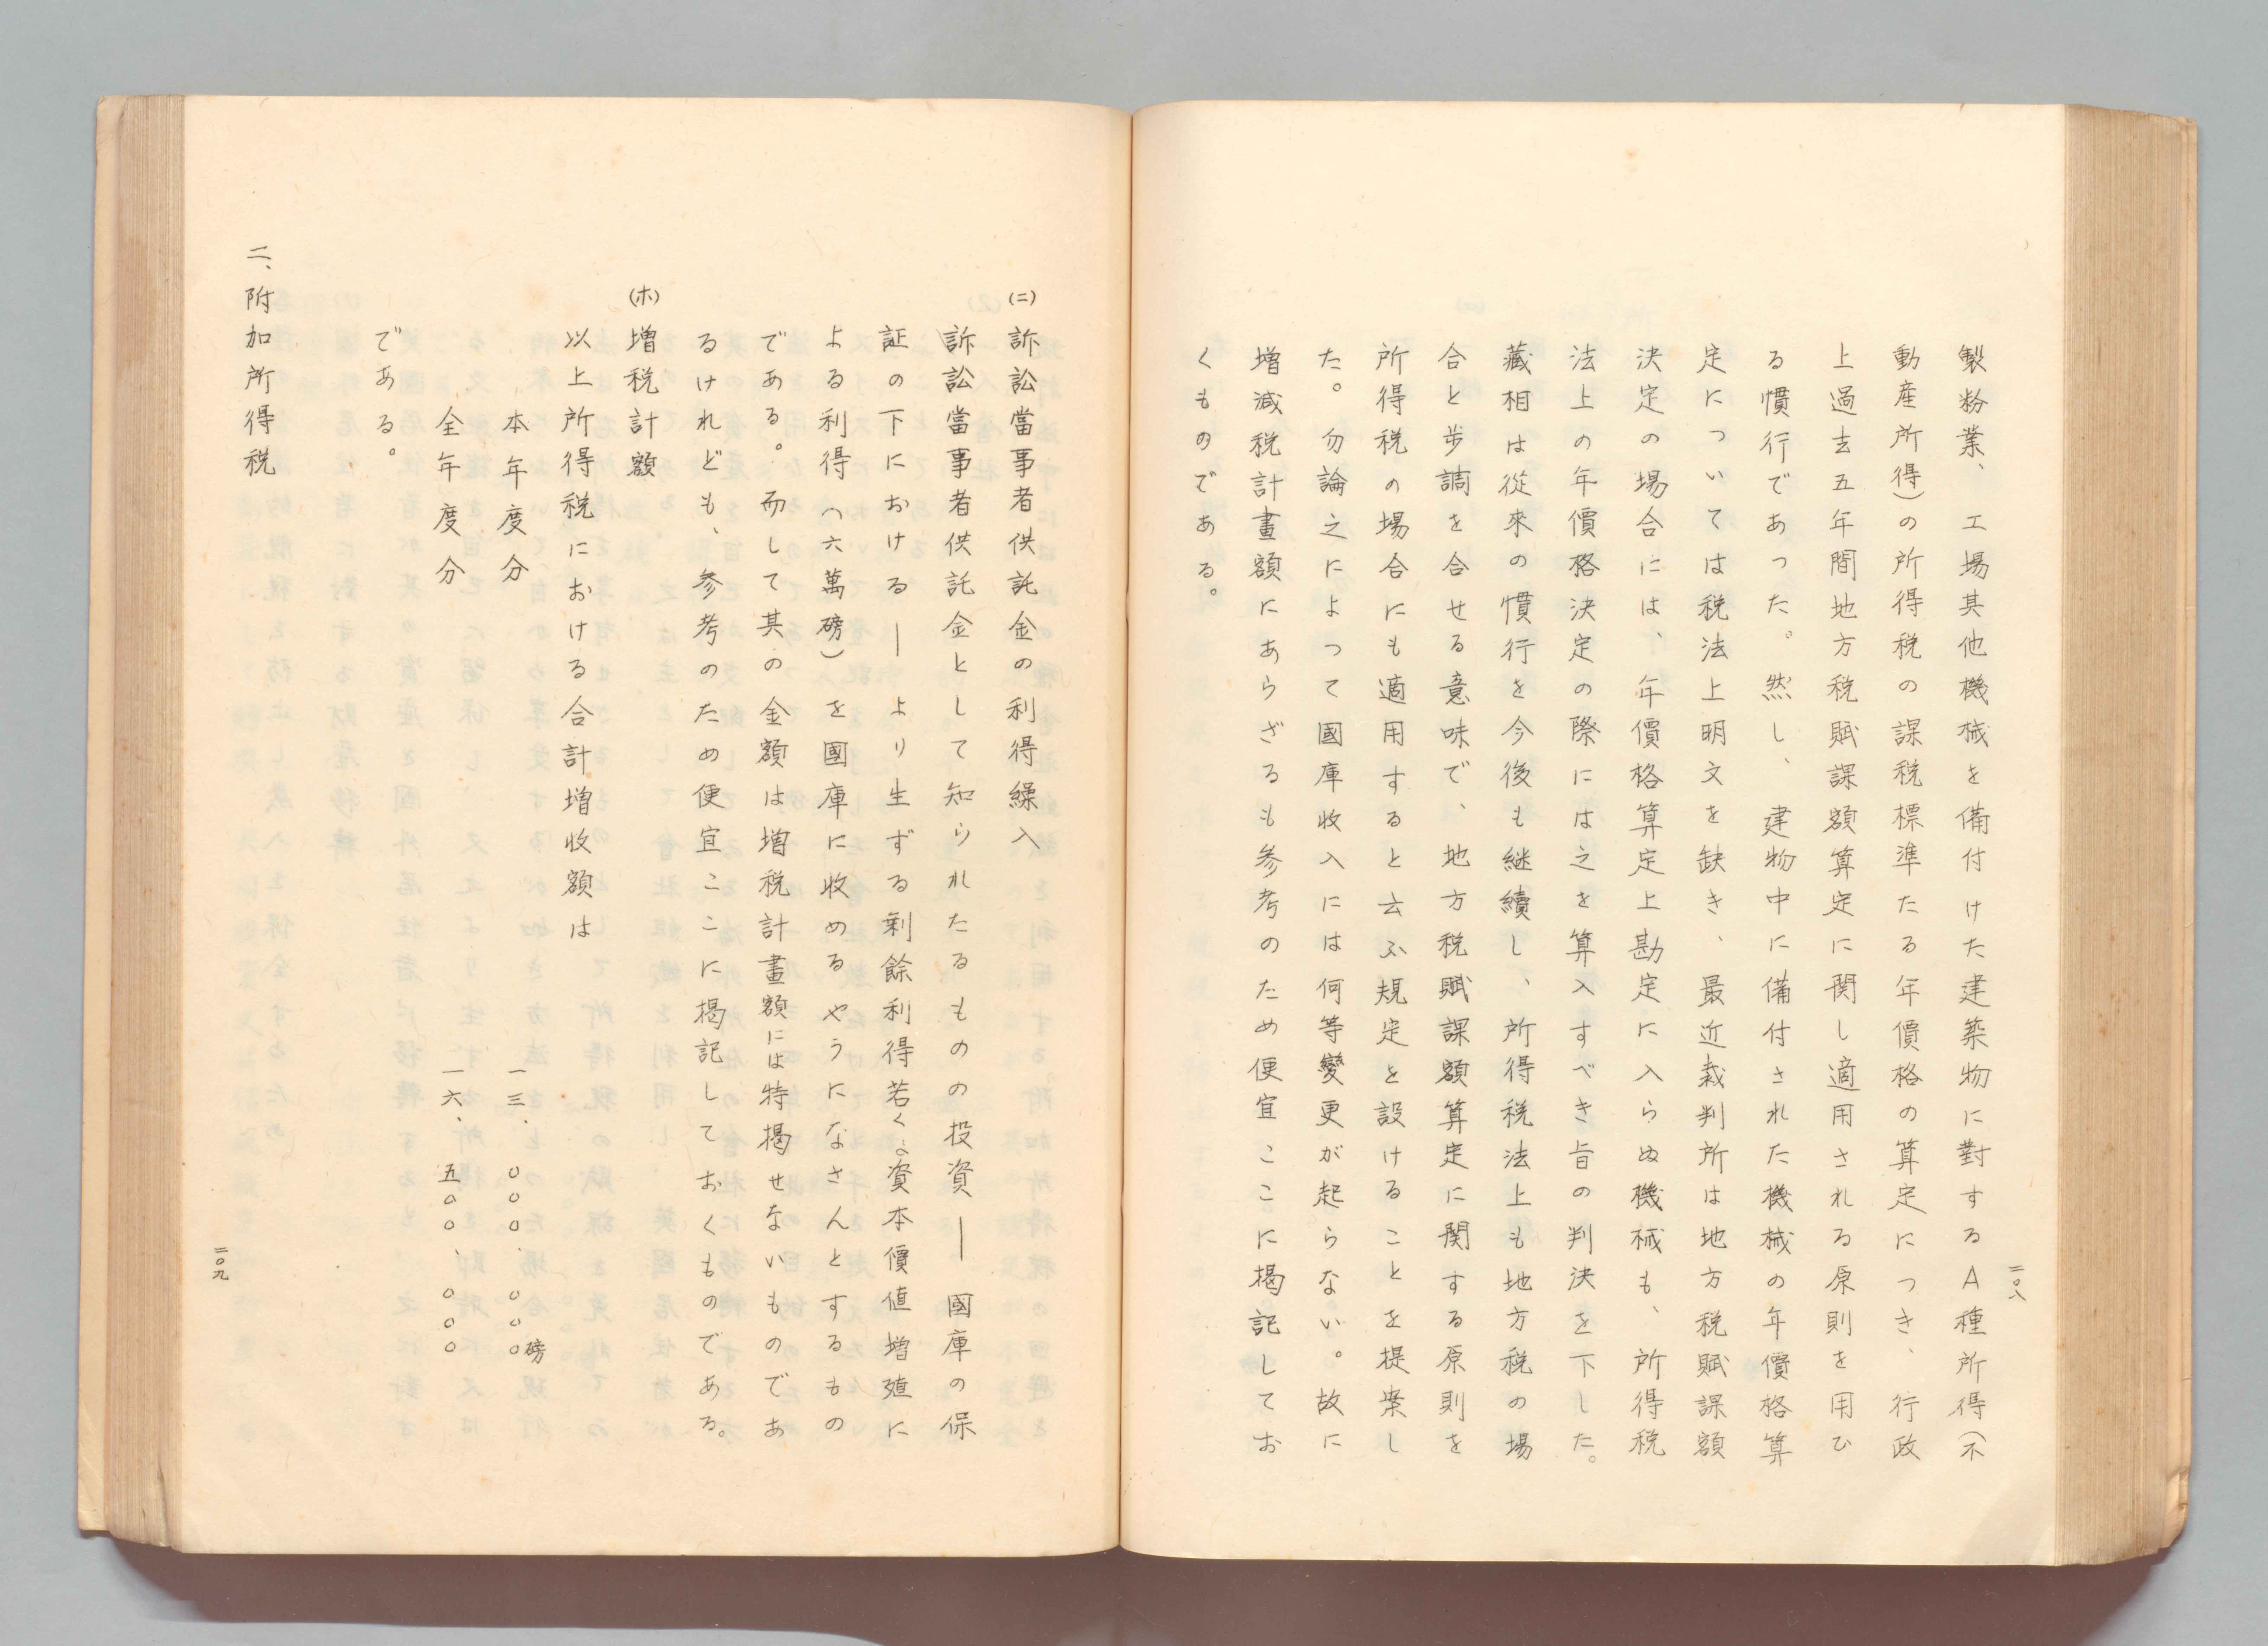 製粉業、工場其他機械を備付けた建築物に對するA種所得(不
動産所得)の所得税の課税標準たる年價格の算定につき、行政
上過去五年間地方税賦課額算定に関し適用される原則を用ひ
る慣行であった。然し、建物中に備付された機械の年價格算
定については税法上明文を缺き、最近裁判所は地方税賦課額
決定の場合には、年價格算定上勘定に入らぬ機械も、所得税
法上の年價格決定の際には之を算入すべき旨の判決を下した。
藏相は從來の慣行を今後も継續し、所得税法上も地方税の場
合と歩調を合せる意味で、地方税賦課額算定に関する原則を
所得税の場合にも適用すると云ふ規定を設けることを提案し
た。勿論之によって國庫收入には何等變更が起らない。故に
増減税計畫額にあらざるも参考のため便宜ここに掲記してお
くものである。
二〇八
(ニ)訴訟當事者供託金の利得繰入
訴訟當事者供託金として知られたるものの投資―國庫の保
証の下における―より生ずる剰餘利得若くは資本價値増殖に
よる利得(六萬磅)を國庫に收めるやうになさんとするもの
である。而して其の金額は増税計畫額には特掲せないものであ
るけれども、参考のため便宜ここに掲記しておくものである。
(ホ)増税計額
以上所得税における合計増收額は
本年度分 一三、〇〇〇、〇〇〇磅
全年度分 一六、五〇〇、〇〇〇
である。
二、附加所得税
二〇九